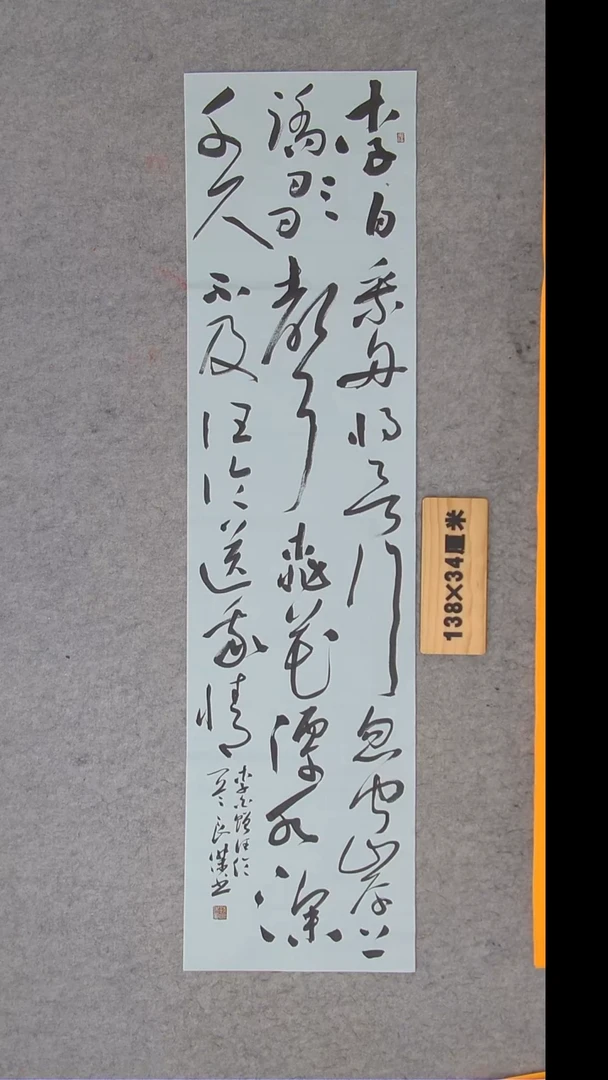 李白乘舟将欲行忽闻岸上
踏歌声桃花潭水深
千尺不及汪伦送我情
李白赠汪伦
良书
138×34厘米